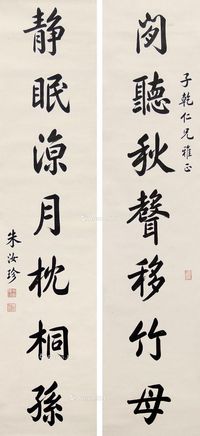 子乾仁兄雅正
闲聽秋聲移竹母
静眠凉月枕桐孫
朱汝珍